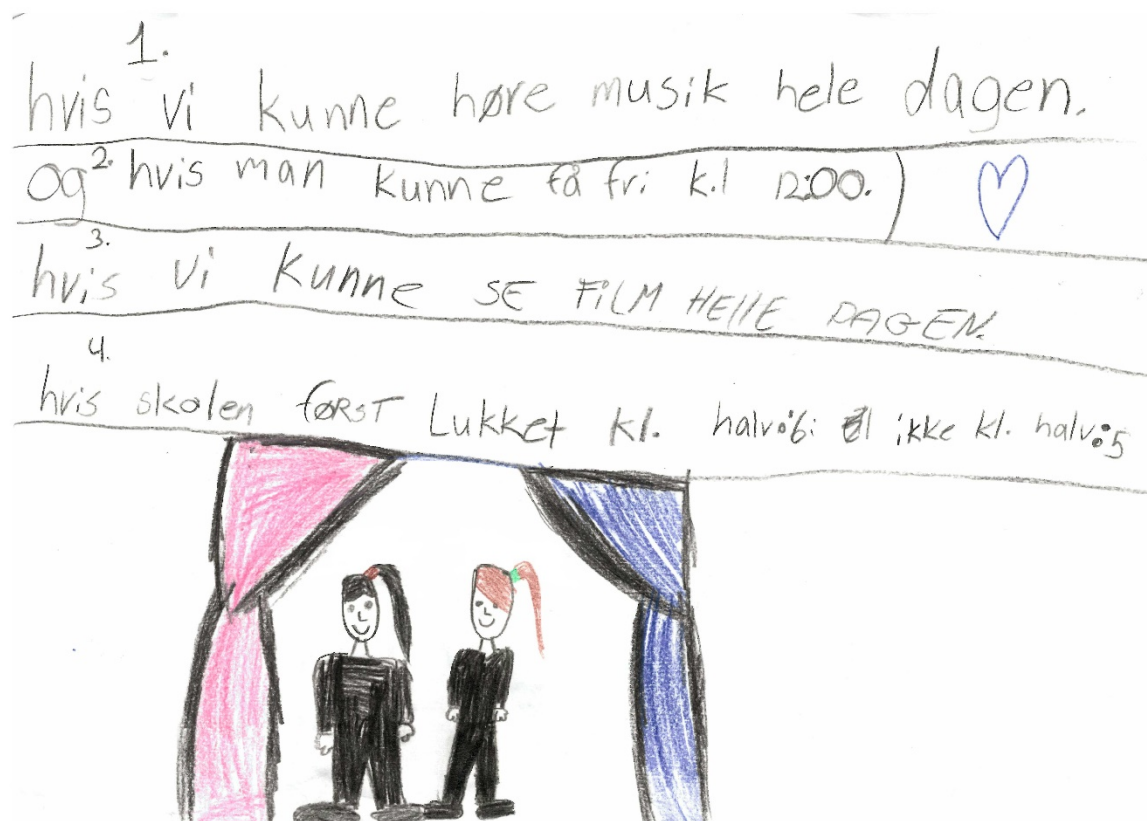 1.
hvis vi kunne høre musik hele dagen.
og 2. hvis man kunne få fri k.l 12:00.)
3.
hvis vi kunne SE FILM HELLE DAGEN.
4.
hvis skolen føRST Lukket kl. halv:6: ikke kl. halv:5